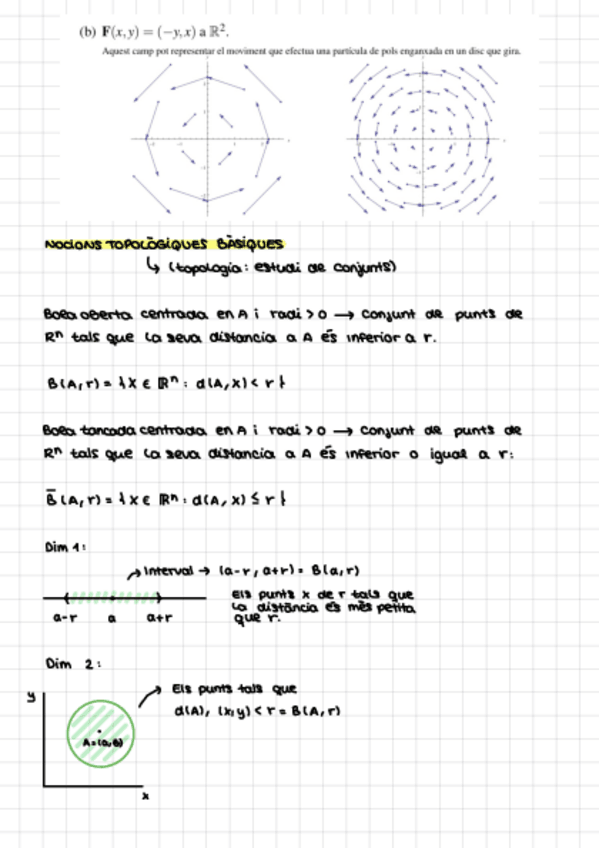 (b) F(x,y) = (−y,x) a ℝ².
Aquest camp pot representar el moviment que efectua una partícula de pols enganxada en un disc que gira.
NOCIONS TOPOLÒGIQUES BÀSIQUES
↳ (topologia: estudi de conjunts)
Bola oberta centrada en A i radi > 0 → conjunt de punts de
Rⁿ tals que la seva distancia a A és inferior a r.
B(A,r) = {X ∈ ℝⁿ : d(A,X) < r}
Bola tancada centrada en A i radi > 0 → conjunt de punts de
Rⁿ tals que la seva distancia a A és inferior o igual a r:
B̄(A,r) = {X ∈ ℝⁿ : d(A,X) ≤ r}
Dim 1:
Interval → (a-r, a+r) = B(a,r)
a-r a a+r
Els punts x de r tals que
la distància és més petita
que r.
Dim 2:
y
Els punts tals que
d(A), (x,y) < r = B(A,r)
A=(a,b)
x